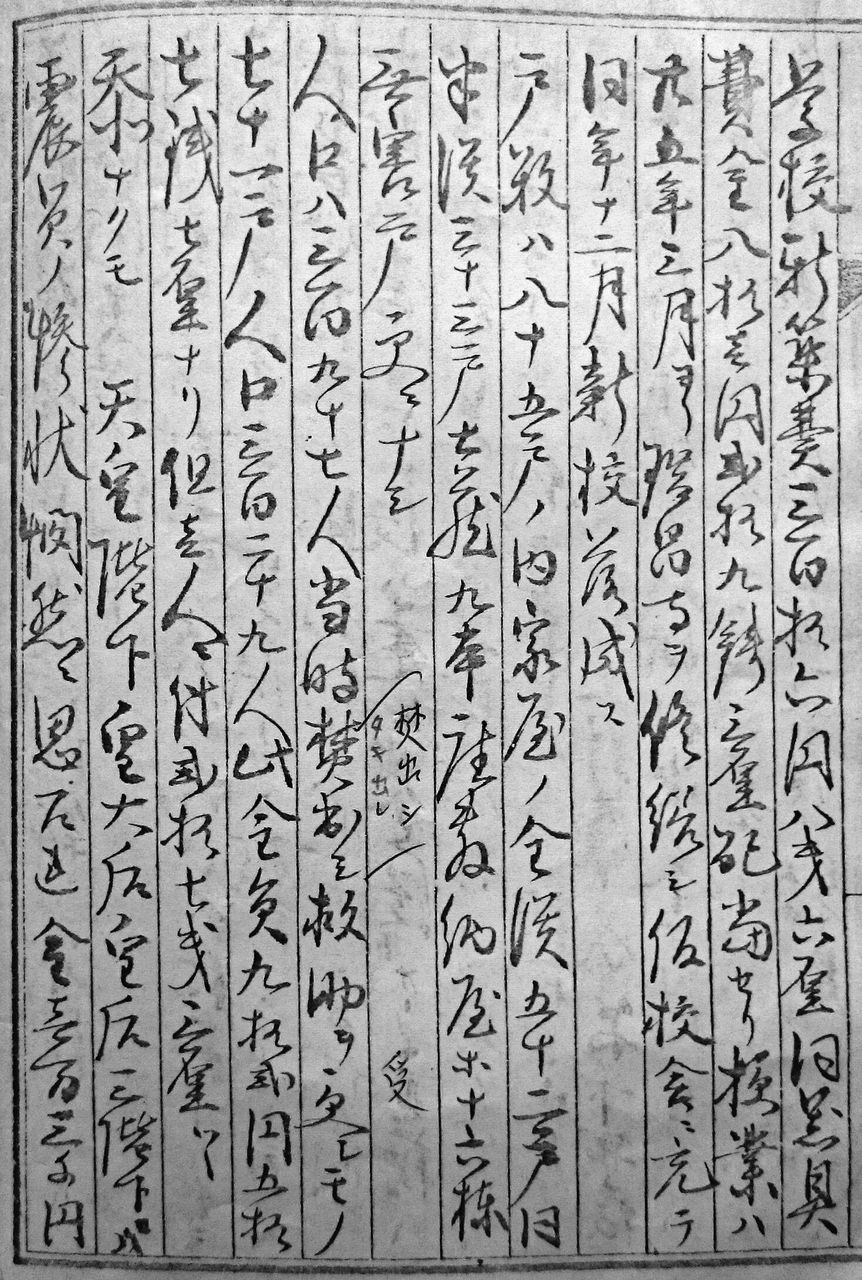 学校新築費三百拾六円八戔六厘同器具
費金八拾壱円弐拾九銭三厘配当セリ授業ハ
廿五年三月ヨリ瑞昌寺ヲ修繕シ仮校舎ニ充テ
同年十二月新校落成ス
戸数ハ八十五戸ノ内家屋ノ全潰五十二戸同
半潰三十三戸土蔵九本座敷納屋等十六棟
無害戸更ニナシ
焚出シ
タキ出し
受
人口ハ三百九十七人当時焚出シ救助ヲ受シモノ
七十一戸人口三百二十九人此金員九拾弐円五拾
七銭七厘ナリ但壱人ニ付弐拾七戔三厘
忝ナクモ 天皇陛下皇太后皇后三陛下ハ
震災ノ惨状憫然ニ思召 金壱百三千円